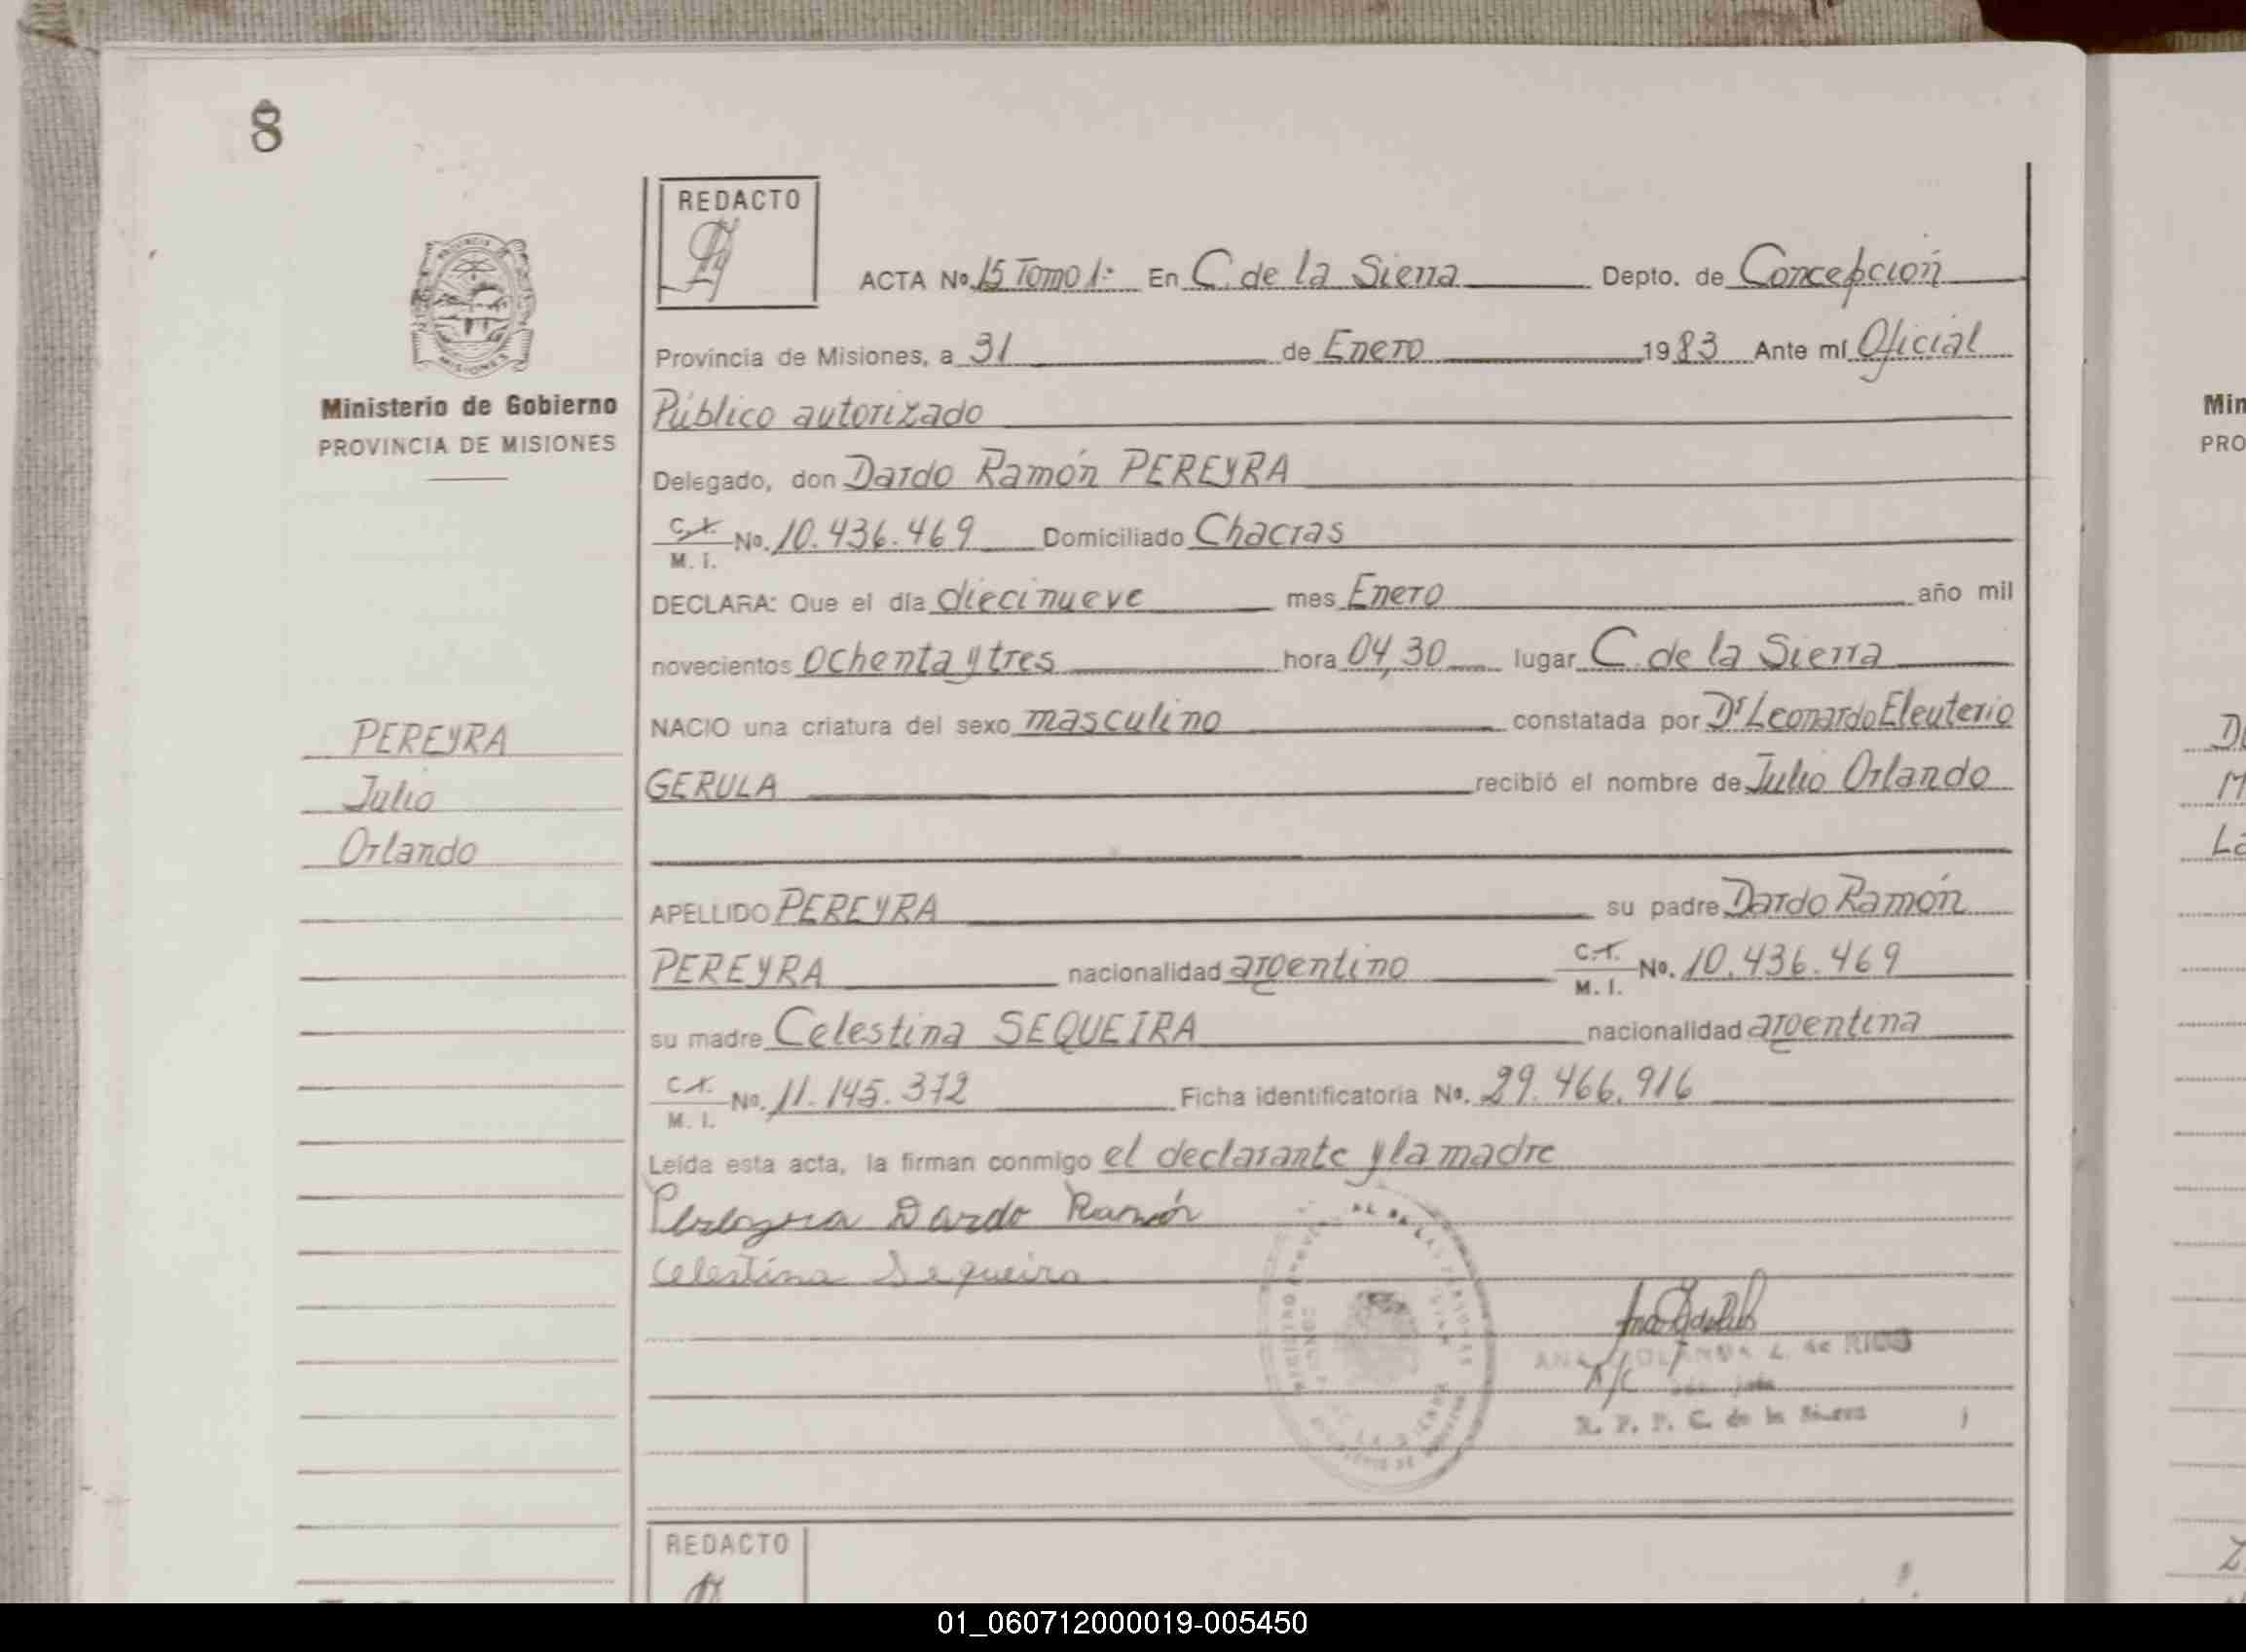 8
REDACTO
ACTA No. 15 Tomo 1º En C. de la Sierra Depto. de Concepción
Provincia de Misiones, a 31 de Enero 1983 Ante mí Oficial
Ministerio de Gobierno
PROVINCIA DE MISIONES
Público autorizado
Delegado, don Dardo Ramón PEREYRA
C.I.
M. I. No. 10.436.469 Domiciliado Chacras
DECLARA: Que el día diecinueve mes Enero año mil
novecientos ochenta y tres hora 04,30 lugar C. de la Sierra
NACIO una criatura del sexo masculino constatada por Dr Leonardo Eleuterio
GERULA recibió el nombre de Julio Orlando
PEREYRA
Julio
Orlando
APELLIDO PEREYRA su padre Dardo Ramón
PEREYRA nacionalidad argentino C.I.
M. I. No. 10.436.469
su madre Celestina SEQUEIRA nacionalidad argentina
C.I.
M. I. No. 11.145.372 Ficha identificatoria No. 29.466.916
Leída esta acta, la firman conmigo el declarante y la madre
Dardo Ramón
Celestina Sequeira
L. de RIOS
A/C
R. P. P. C. de la Sierra
REDACTO
Min
PRO
01_060712000019-005450